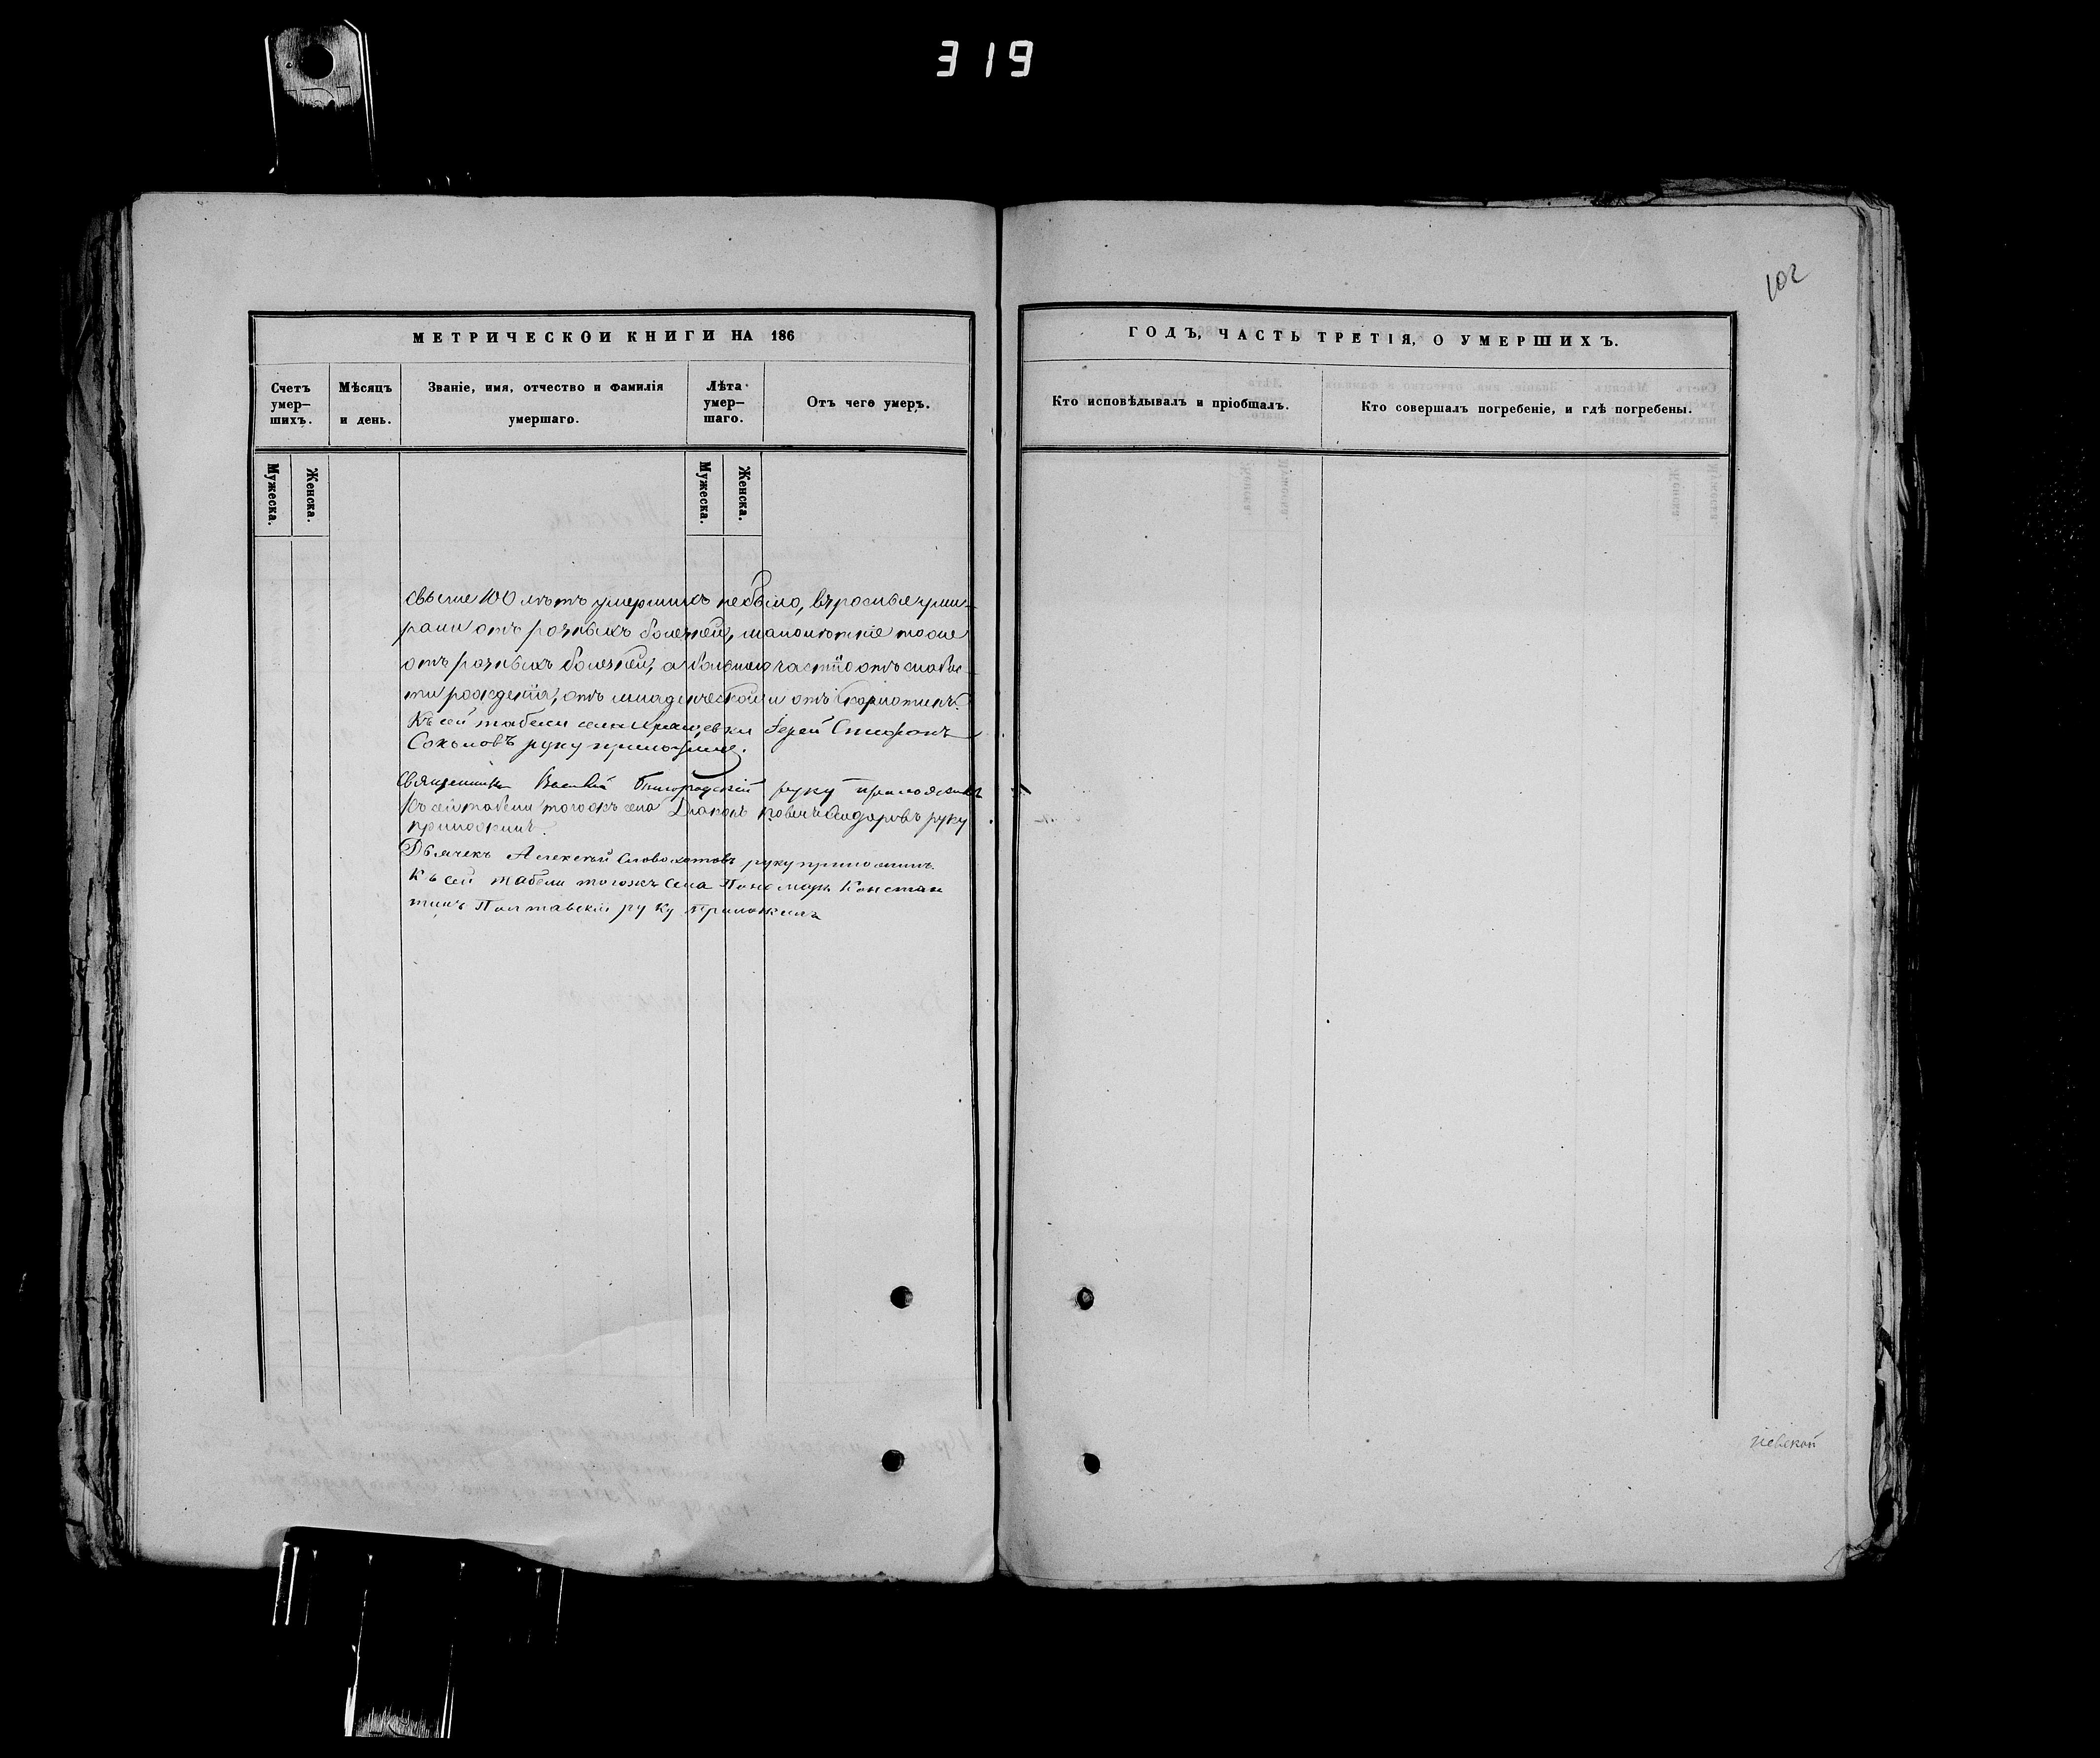 319
102
МЕТРИЧЕСКОЙ КНИГИ НА 186
Счетъ умер-шихъ.
Мѣсяцъ и день.
Званіе, имя, отчество и фамилія умершаго.
Лѣта умер-шаго.
Отъ чего умеръ.
Мужеска.
Женска.
Мужеска.
Женска.
свыше 100 лѣтъ умершихъ не было, взрослые уми-
рали отъ разныхъ болезней, малолѣтніе тоже
отъ разныхъ болезней, а большею частію отъ слабос
ти рожденія, отъ младенческой и отъ скарлатины.
Къ сей табели села Іерей Стефанъ
Соколовъ руку приложилъ.
Священникъ Василій руку приложилъ
Къ сей табели тогожъ села Діаконъ руку
приложилъ.
Дьячекъ Алексѣй руку приложилъ.
Къ сей табели тогожъ села Пономарь Констан
тинъ Полтавскій руку приложилъ
ГОДЪ, ЧАСТЬ ТРЕТІЯ, О УМЕРШИХЪ.
Кто исповѣдывалъ и пріобщалъ.
Кто совершалъ погребеніе, и гдѣ погребены.